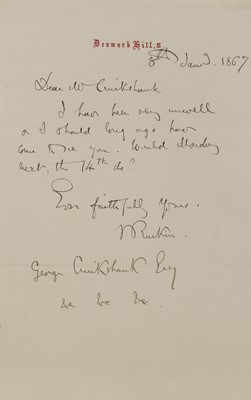 Denmark Hill, S.
8th Jany. 1867
Dear Mr Cruikshank
I have been very unwell
or I should long ago have
come to see you. Would Monday
next, the 14th do?
Ever faithfully yours.
J Ruskin.
George Cruikshank Esq
&c &c &c.